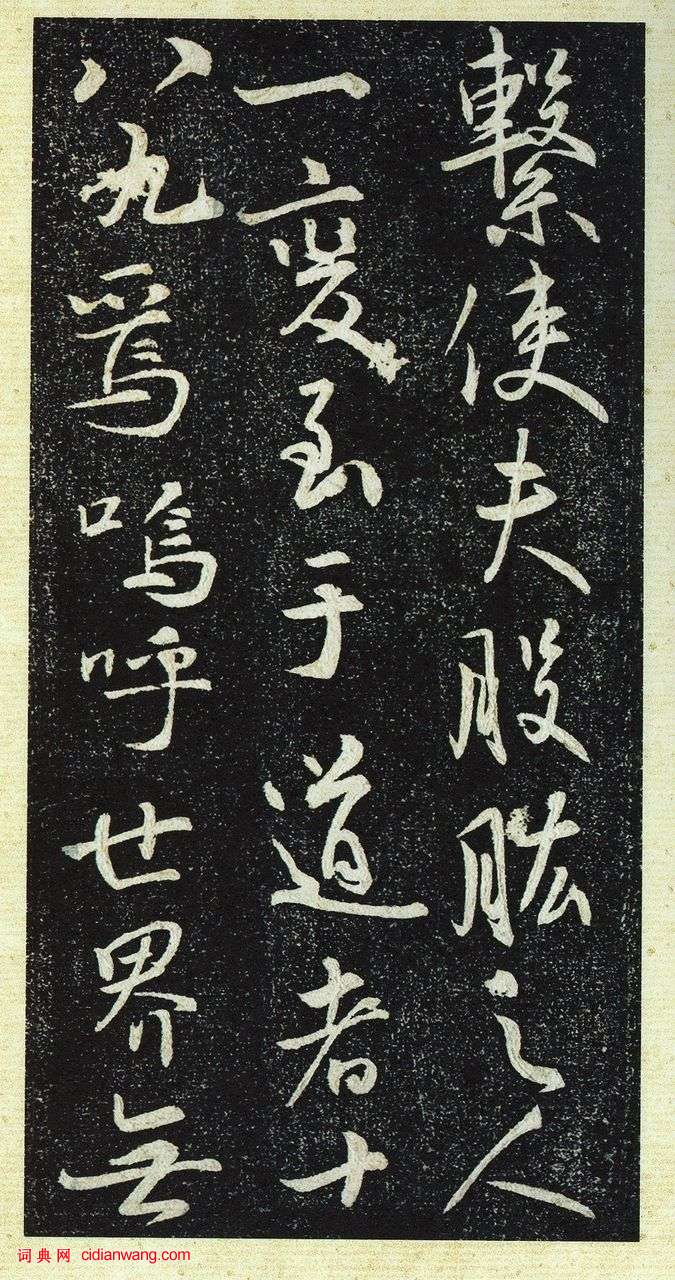 繫使夫股肱之人
一變至于道者十
八九焉嗚呼世界無
词典网 cidianwang.com